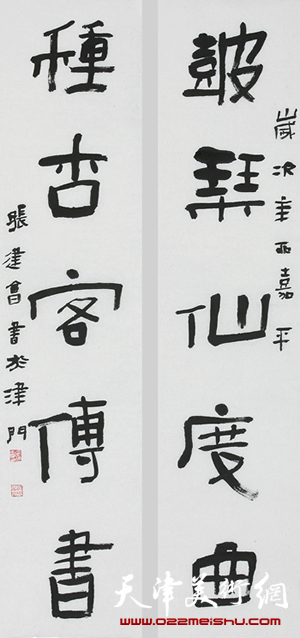 歲次辛丑嘉平
皷琴仙度曲
種杏客傳書
張建會書於津門
天津美術網
www.022meishu.com